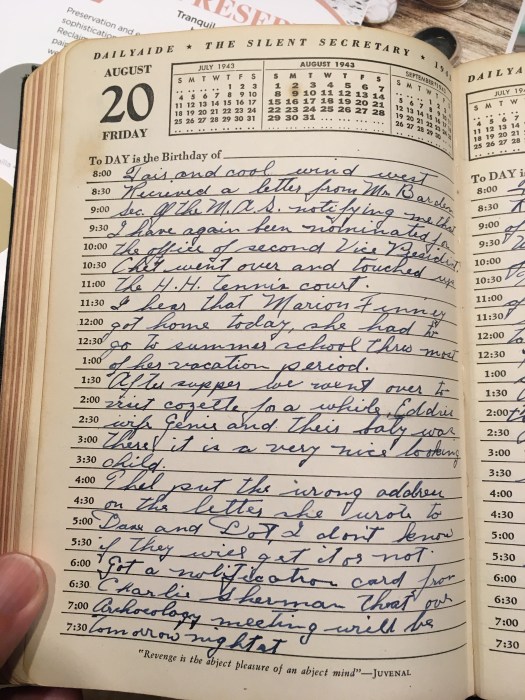 RESER
Preservation and
sophistication
Reclaim
Tranquil
DAILYAIDE ★ THE SILENT SECRETARY ★ 19
AUGUST
20
FRIDAY
JULY 1943
S M T W T F S
1 2 3
4 5 6 7 8 9 10
11 12 13 14 15 16 17
18 19 20 21 22 23 24
25 26 27 28 29 30 31
AUGUST 1943
S M T W T F S
1 2 3 4 5 6 7
8 9 10 11 12 13 14
15 16 17 18 19 20 21
22 23 24 25 26 27 28
29 30 31
SEPTEMBER
To DAY is the Birthday of
8:00 Fair, and cool wind west
8:30 Received a letter from Mr. Barden
9:00 Sec. of the M.A.S. notifying me that
9:30 I have again been nominated for
10:00 the office of second Vice President.
10:30 Chet went over and touched up
11:00 the H.H. tennis court.
11:30 I hear that Marion Finney
12:00 got home today, she had to
12:30 go to summer school thru most
1:00 of her vacation period.
1:30 After supper we went over to
2:00 visit Cozette for a while, Eddie
2:30 wife Genie and their baby was
3:00 there, it is a very nice looking
3:30 child.
4:00 Thel put the wrong address
4:30 on the letter she wrote to
5:00 Dave and Dot, I don't know
5:30 if they will get it or not.
6:00 Got a notification card from
6:30 Charlie Sherman that our
7:00 Archaeology meeting will be
7:30 tomorrow night at
"Revenge is the abject pleasure of an abject mind"—JUVENAL
DAILYA
JULY 194
To DAY i
8:00
8:30
9:00
9:30
10:00
10:30
11:00
11:30
12:00
12:30
1:00
1:30
2:00
2:30
3:00
3:30
4:00
4:30
5:00
5:30
6:00
6:30
7:00
7:30